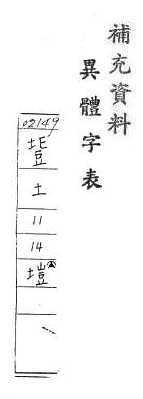 補充資料
異體字表
02149
土
11
14
塏